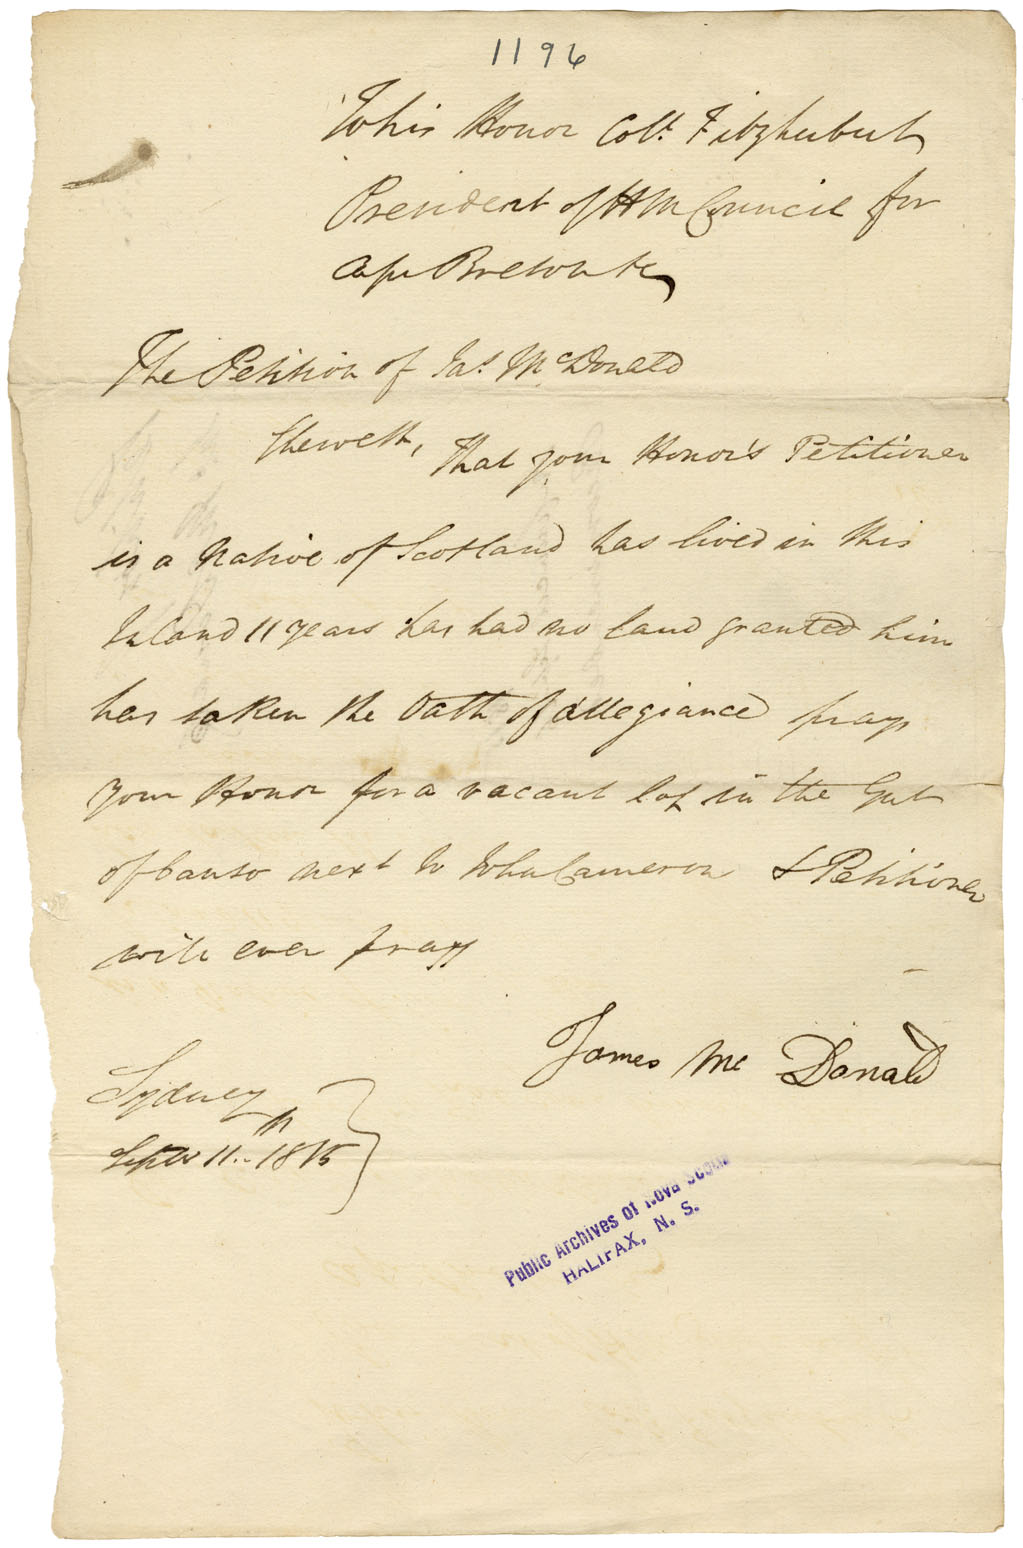 1196
To his Honor Coll. Fitzherbert
President of H M Council for
Cape Breton &c
The Petition of Jas. McDonald
Sheweth, That your Honor's Petitioner
is a Native of Scotland has lived in this
Island 11 years has had no land granted him
has taken the Oath of Allegiance prays
your Honor for a vacant lot in the Gut
of Canso next to John Cameron & Petitioner
will ever pray
James Mc Donald
Sydney
Septr 11th 1815
Public Archives of Nova Scotia
HALIFAX, N. S.